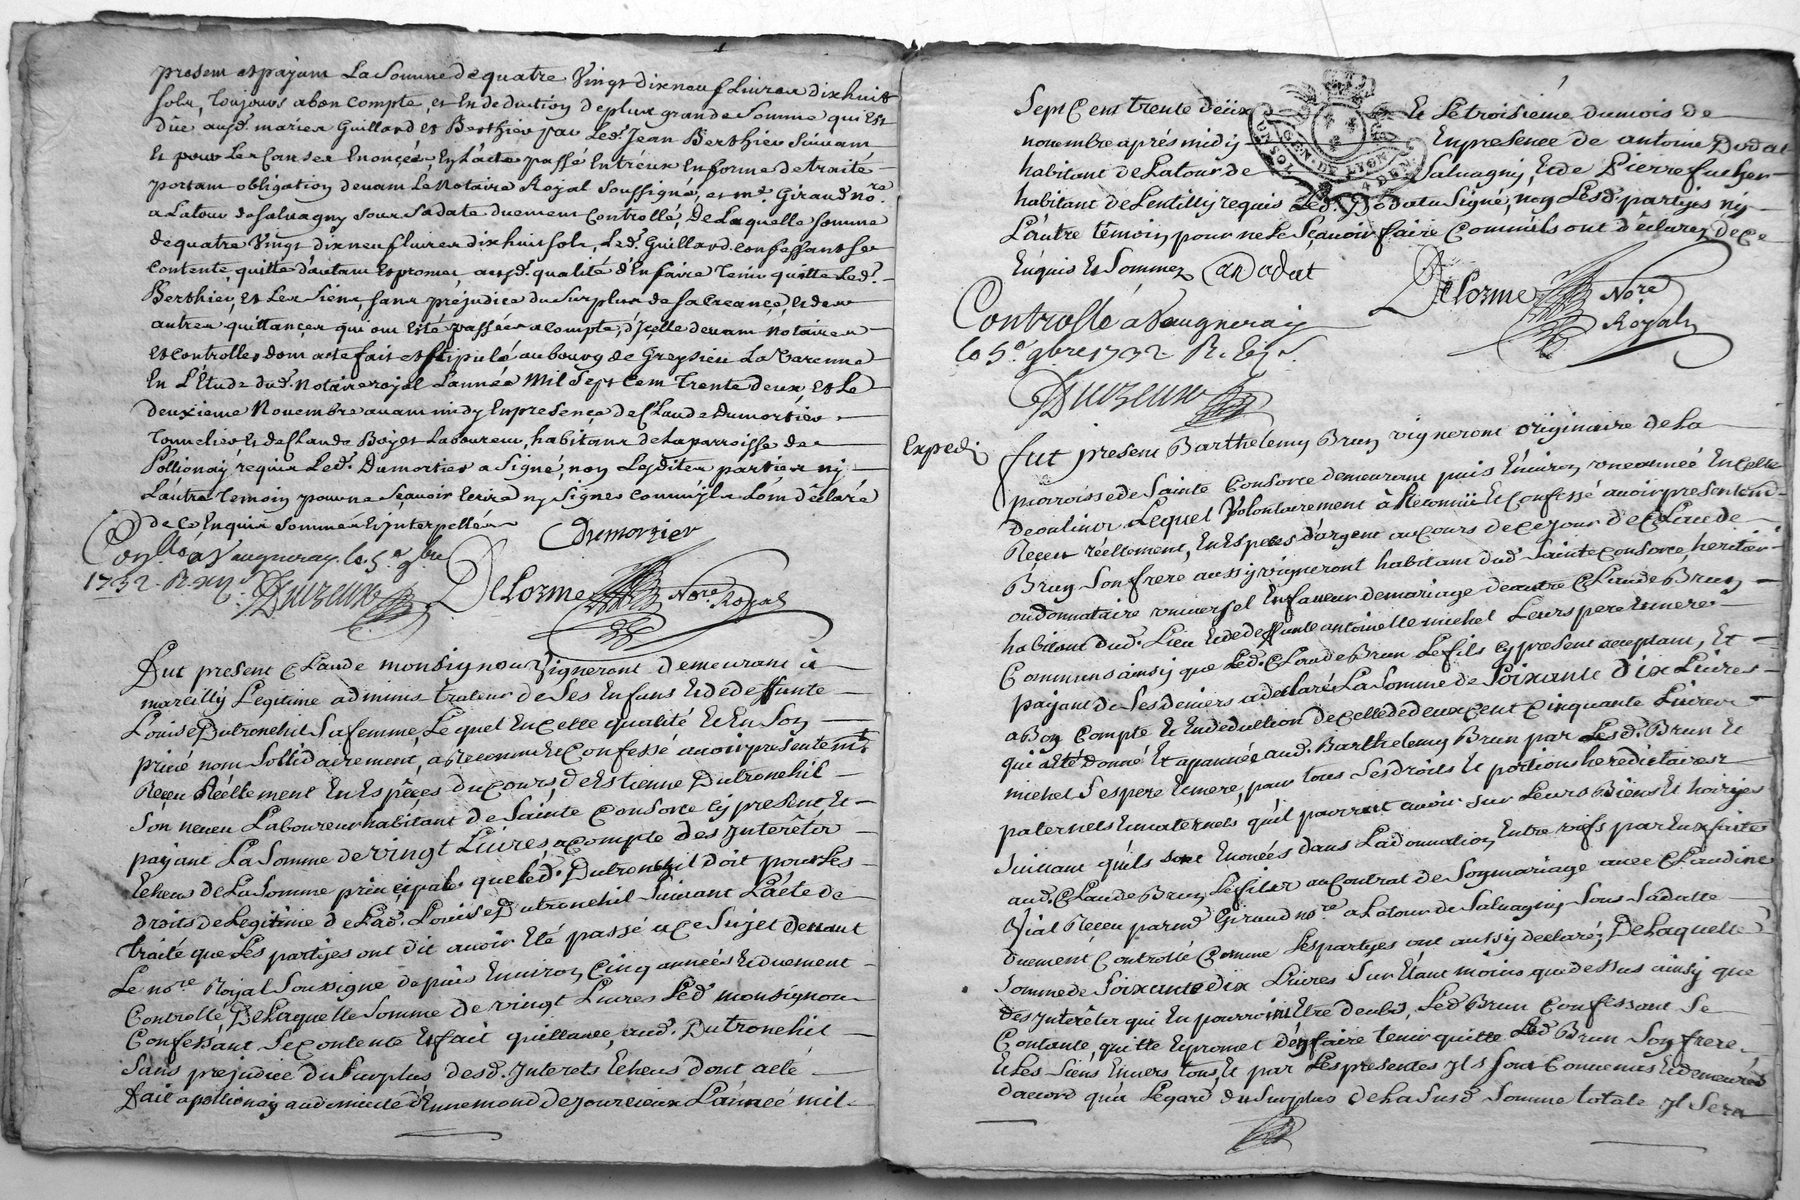 present et payant La Somme de quatre Vingt dixneuf Livres dixhuit
sols, toujours abon compte, et En deduction de plus grande Somme qui Est
dûe ausd. mariés Guillard et Berthier par Led. Jean Berthier Suivant
Et pour Les Causes Enoncées En L'acte passé Entreux En forme de traité
portant obligation devant Le Notaire Royal Soussigné, et me. Giraud nore.
a Latour de Salvagny Sous Sa date duement Controllé, De Laquelle Somme
de quatre Vingt dix neuf Livres dixhuit sols, Led. Guillard confessant Se
contente, quitte d'autant Et promet ausd. qualité d'En faire tenir quitte Led.
Berthier, et Les Siens, sans préjudice du Surplus de sa Creance, et des
autres quittances qui ont Esté passées acompte d'Icelle devant Notaires
et controllés dont acte fait et stipulé au bourg de Greysieu La Varenne
En L'Etude dud. Notaire royal L'année Mil Sept Cent Trente deux, et Le
deuxieme Novembre avant midy En presence de Claude Dumortier
Tonnelier et de Claude Boyet Laboureur, habitans de La parroisse de
Pollionay, requis Led. Dumortier a Signé, non Lesdites parties ny
L'autre Temoin pour ne Sçavoir Ecrire ny Signer comm'ils L'ont déclaré
de ce Enquis Sommés Et Interpellés
Dumortier
Conllé a Vaugneray le 5e. 9bre
1732
Delorme Nore. Royal
Fut present Claude monsignou Vigneront demeurant à
marcilly Legitime administrateur de Ses Enfans Et de deffunte
Louise Dutronchil Sa femme, Lequel En Cette qualité Et En Son
privé nom Sollidairement, a Reconnu Et Confessé avoir presentemt.
Reçeu Réellement En Espêces du cours, d'Estienne Dutronchil
Son neveu Laboureur habitant de Sainte Consorce Cy present Et
payant La Somme de vingt Livres, acompte des Interêts
Echeus de La Somme principale que Led. Dutronchil doit pour Les
droits de Legitime de Lad. Louise Dutronchil Suivant L'acte de
traité que Les partyes ont dit avoir Eté passé a ce Sujet Devant
Le nore. Royal Soussigné depuis Environ Cinq années Et duement
Controllé, De Laquelle Somme de vingt Livres Led. monsignou
Confessant Se contente Et fait quittance aud. Dutronchil
Sans prejudice du Surplus desd. Interets Echeus dont acte
Fait a pollionay au domicile d'Ennemond de jourcieux L'année mil
Sept Cent trente deux Et Le troisiéme du mois de
novembre aprés midy En presence de antoine Dodat
habitant de Latour de Salvagny, Et de Pierre fucher
habitant de Lentilly requis Led. Dodat a Signé, non Lesd. partyes ny
L'autre témoin pour ne Le Sçavoir faire Comm'ils ont déclarez de ce
Enquis Et Sommez
GEN. DE LYON
aDodat
Delorme Nore. Royal
Controllé à Vaugneray
le 5e. 9bre 1732
Expedié
Fut present Barthelemy Brun vigneront originaire de La
parroisse de Sainte Consorce demeurant puis Environ une année En Celle
Decoulinor Lequel Volontairement à Reconnu Et Confessé avoir presentemt.
Reçeu réellement, En Especes d'argent au cours de ce jour de Claude
Brun Son frere aussy vigneront habitant dud. Sainte Consorce heritier
ou donnataire universel En faveur de mariage de autre Claude Brun
habitant dud. Lieu Et de deffunte antoinette michel Leurs pere Et mere
Communs ainsy que Led. Claude Brun Le fils Cy present acceptant, Et
payant de Ses deniers a declaré La Somme de Soixante Dix Livres
a Bon Compte Et En deduction de celle de deux cent cinquante Livres
qui a été donné Et apannée aud. Barthelemy Brun par Lesd. Brun Et
michel Ses pere Et mere, pour tous Ses droits Et portions hereditaires
paternels Et maternels qu'il pourrait avoir Sur Leurs Biens Et hoiries
Suivant qu'ils sont Enoncés dans La donnation Entre vifs par Eux faite
aud. Claude Brun Le fils au Contrat de Son mariage avec Claudine
Vial Reçeu par me. Giraud nore. a Latour de Salvagny Sous Sa datte
duement Controllé Comme Les partyes ont aussy declaré, De Laquelle
Somme de Soixante dix Livres Sur Etant moins que dessus ainsy que
Des Interêts qui En pourroint Etre deubs, Led. Brun Confessant Se
Contante, quitte Et promet d'En faire tenir quitte Led. Brun Son frere
Et Les Siens Envers tous Et par Les presentes Ils Sont Convenus Et demeurés
d'accord qu'à L'égard du Surplus de La Susd. Somme totale Il Sera